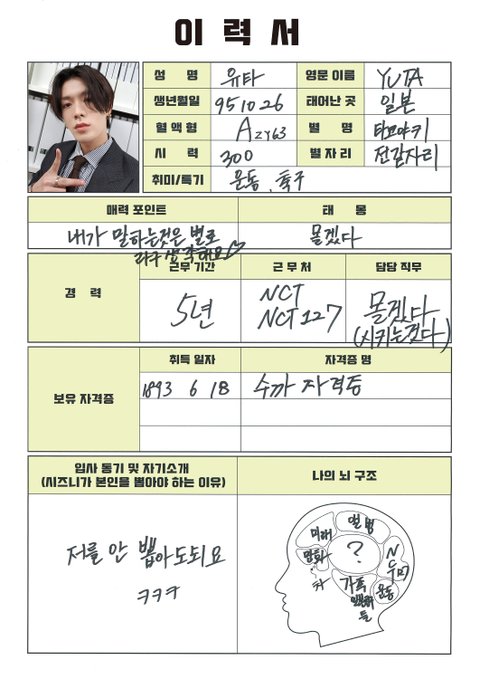 이력서
성 명 유타 영문 이름 YUTA
생년월일 951026 태어난 곳 일본
혈액형 A 별 명 타코야키
시 력 300 별자리 전갈자리
취미/특기 운동, 축구
매력 포인트 태 몽
내가 말하는것은 별로 몰겠다
라구 생각해요♡
경 력 근무 기간 근 무 처 담당 직무
5년 NCT 몰겠다
NCT 127 (시키는것다)
보유 자격증 취득 일자 자격증 명
1893 6 18 수까 자격등
입사 동기 및 자기소개 나의 뇌 구조
(시즈니가 본인을 뽑아야 하는 이유)
저를 안 뽑아도되요
ㅋㅋㅋ
미래
앨범
만화
?
차
가족
멤버들
운동